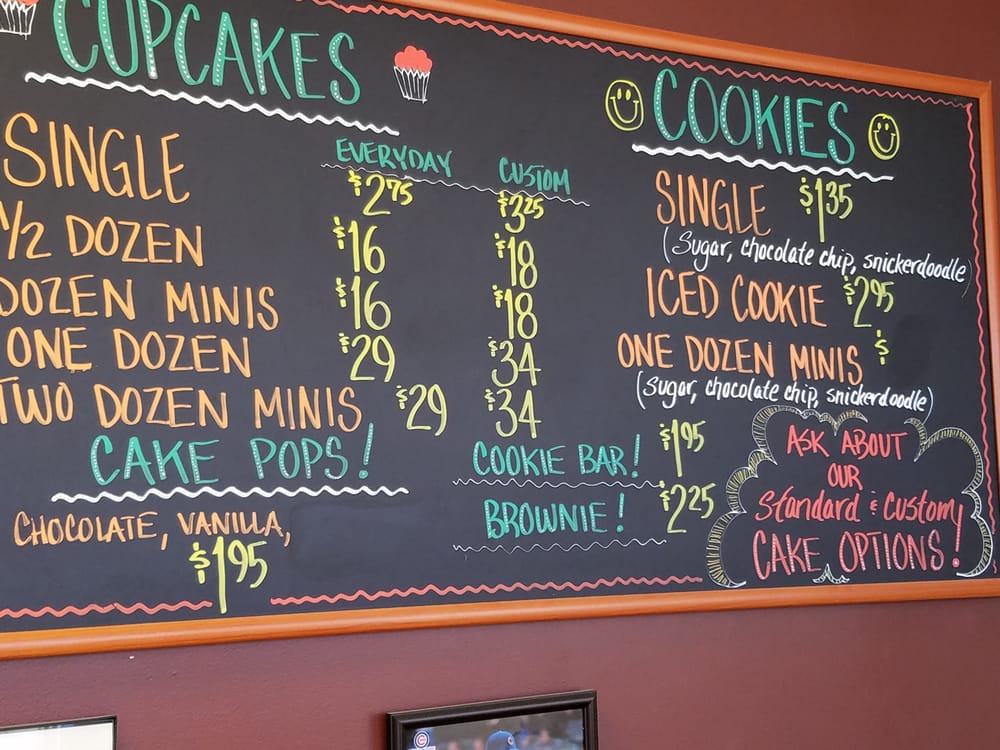 CUPCAKES
EVERYDAY CUSTOM
SINGLE $2.75 $3.25
1/2 DOZEN $16 $18
DOZEN MINIS $16 $18
ONE DOZEN $29 $34
TWO DOZEN MINIS $29 $34
CAKE POPS!
CHOCOLATE, VANILLA,
$1.95
COOKIES
SINGLE $1.35
(Sugar, chocolate chip, snickerdoodle)
ICED COOKIE $2.95
ONE DOZEN MINIS $
(Sugar, chocolate chip, snickerdoodle)
COOKIE BAR! $1.95
BROWNIE! $2.25
ASK ABOUT
OUR
Standard & Custom
CAKE OPTIONS!